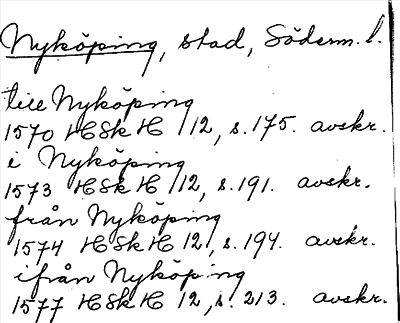 Nyköping, stad, Söderm. l.
till Nyköping
1570 HSkH 12, s. 175. avskr.
i Nyköping
1573 HSkH 12, s. 191. avskr.
från Nyköping
1574 HSkH 12, s. 194. avskr.
ifrån Nyköping
1577 HSkH 12, s. 213. avskr.